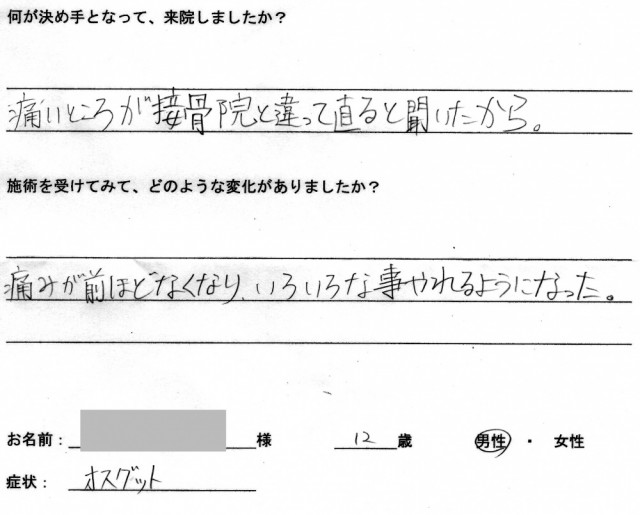 何が決め手となって、来院しましたか？
痛いところが接骨院と違って直ると聞いたから。
施術を受けてみて、どのような変化がありましたか？
痛みが前ほどなくなり、いろいろな事やれるようになった。
お名前： 様 12 歳 男性 ・ 女性
症状： オスグット